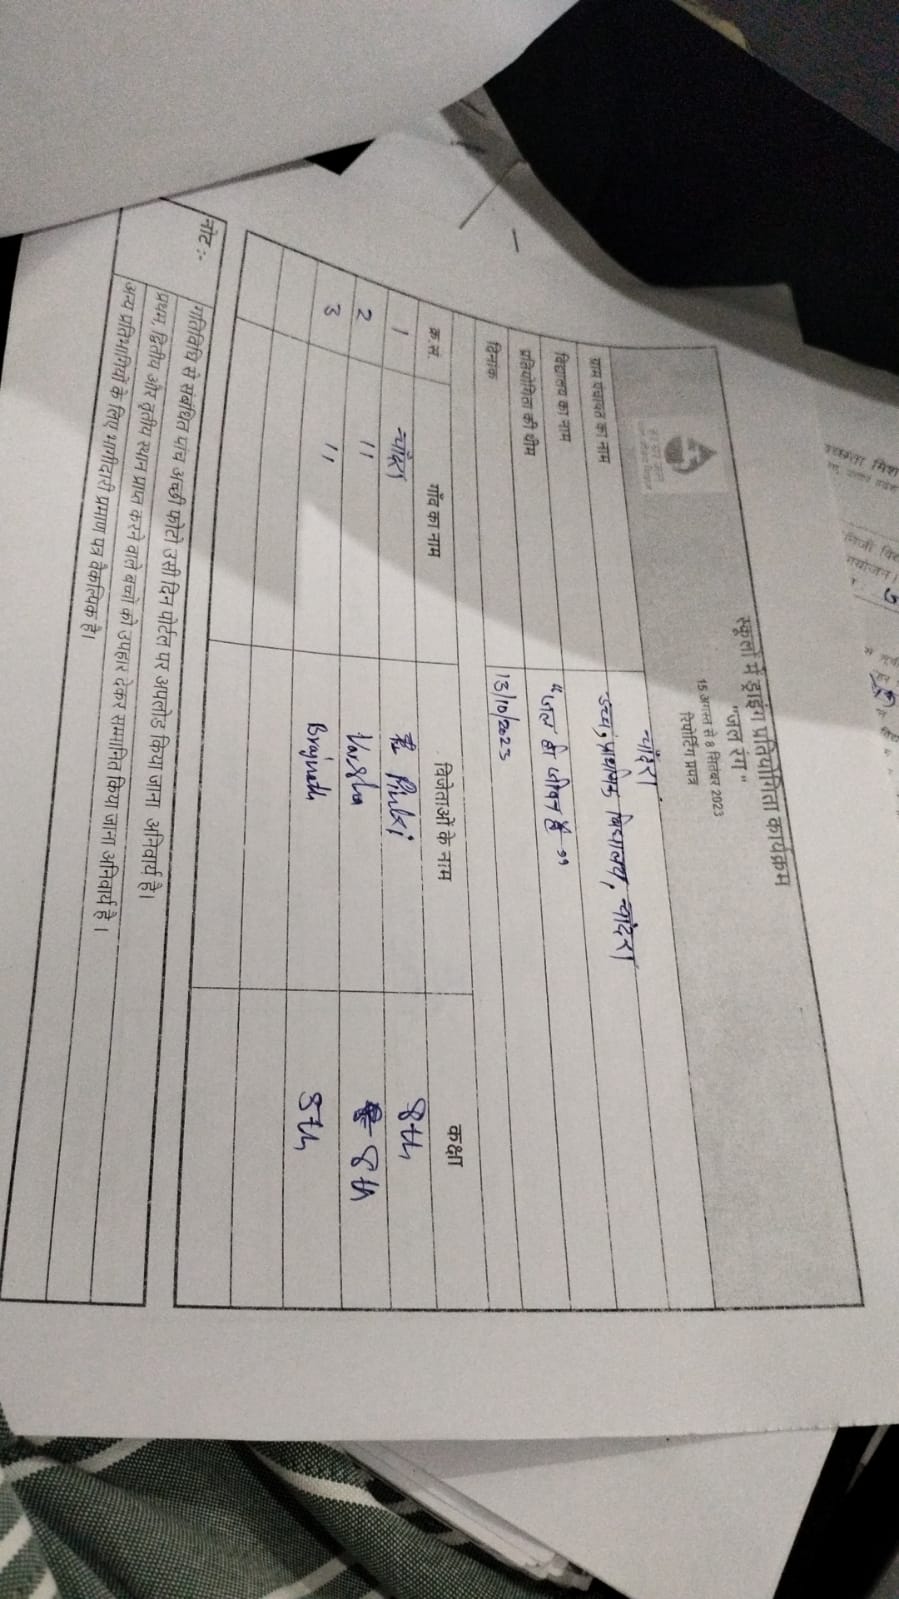 स्कूलों में ड्राइंग प्रतियोगिता कार्यक्रम
"जल रंग"
15 अगस्त से 8 सितंबर 2023
रिपोर्टिंग प्रपत्र
ग्राम पंचायत का नाम चांदरा
विद्यालय का नाम उच्च प्राथमिक विद्यालय, चांदरा
प्रतियोगिता की थीम "जल ही जीवन है"
दिनांक 13/10/2023
क्र.सं गाँव का नाम विजेताओं के नाम कक्षा
1 चांदरा 8th
2 11 Varsha 8th
3 11 Brajnath 5th
नोट:- गतिविधि से संबंधित पांच अच्छी फोटो उसी दिन पोर्टल पर अपलोड किया जाना अनिवार्य है।
प्रथम, द्वितीय और तृतीय स्थान प्राप्त करने वाले बच्चों को उपहार देकर सम्मानित किया जाना अनिवार्य है।
अन्य प्रतिभागियों के लिए भागीदारी प्रमाण पत्र वैकल्पिक है।